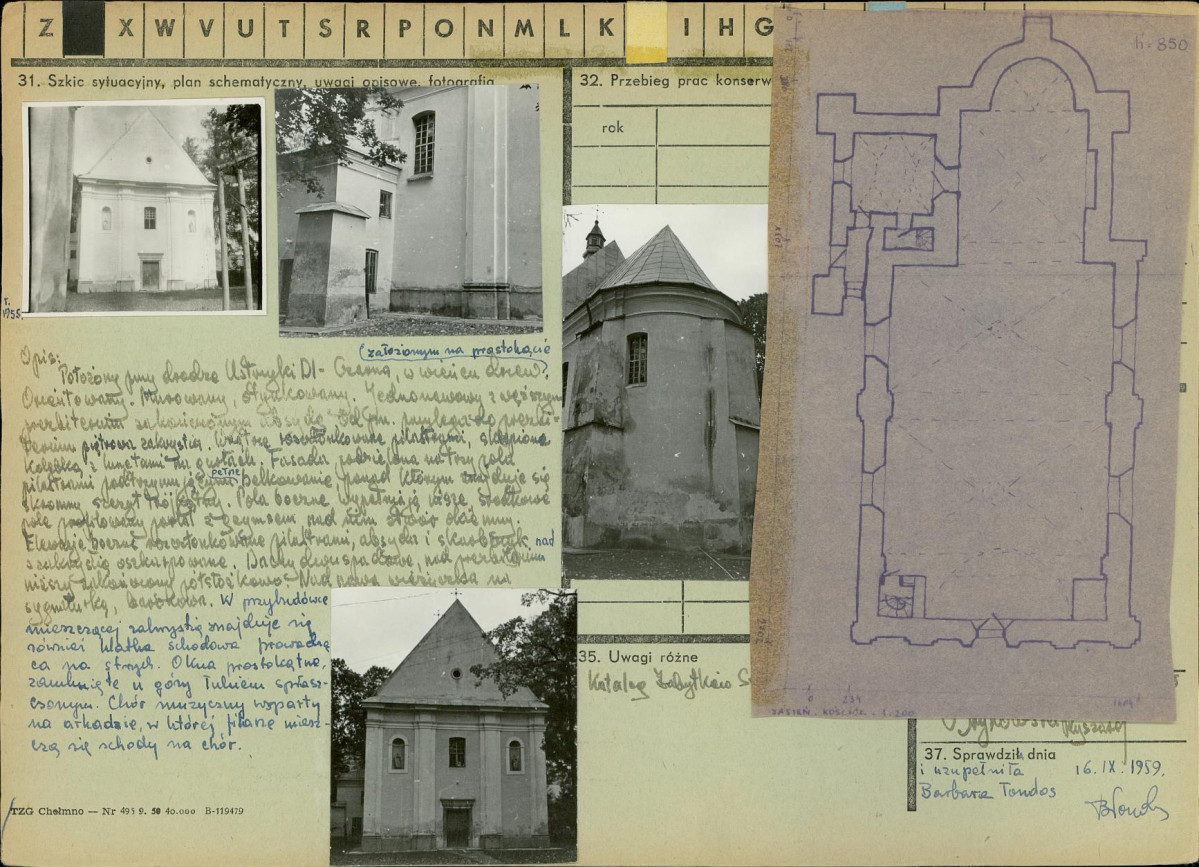 Z X W V U T S R P O N M L K I H G
31. Szkic sytuacyjny, plan schematyczny, uwagi opisowe, fotografia
32. Przebieg prac konserw
rok
h = 850
1955
Opis:
(założonym na prostokącie)
Położony przy drodze Ustrzyki Dl - Czarna, w wieńcu drzew.
Orientowany. Murowany, otynkowany. Jednonawowy z węższym
prezbiterium zakończonym absydą. Od pn. przylega do prezbi-
terium piętrowa zakrystia. Wnętrze rozczłonkowane pilastrami, sklepione
kolebką z lunetami na gurtach. Fasada podzielona na trzy pola
pilastrami podtrzymującymi pełne belkowanie ponad którym znajduje się
skromny szczyt trójkątny. Pola boczne wypełniają nisze, środkowe
pole profilowany portal z gzymsem, nad nim otwór okienny.
Elewacje boczne rozczłonkowane pilastrami, absyda i skarbczyk nad
zakrystią oszkarpowane. Dachy dwuspadowe, nad prezbiterium
niższy zakończony półstożkowo. Nad nawą wieżyczka na
sygnaturkę, barokowa. W przybudówce
mieszczącej zakrystię znajduje się
również klatka schodowa prowadzą
ca na strych. Okna prostokątne,
zamknięte u góry łukiem spłasz-
czonym. Chór muzyczny wsparty
na arkadzie, w której filarze miesz-
czą się schody na chór.
TZG Chełmno — Nr 495 9. 50 40.000 B-119479
35. Uwagi różne
Katalog Zabytków
JASIEŃ - KOŚCIÓŁ - 1:200
37. Sprawdził dnia
i uzupełniła
16.IX.1959.
Barbara Tondos